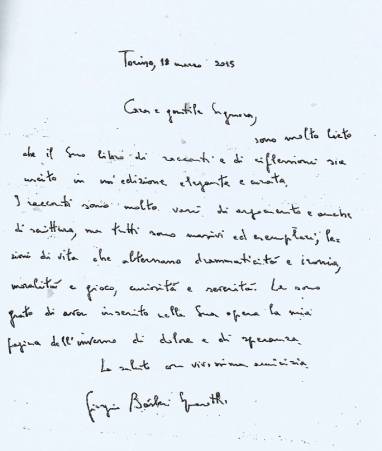 Torino, 18 marzo 2015
Cara e gentile Signora,
sono molto lieto
che il Suo libro di racconti e di riflessioni sia
uscito in un'edizione elegante e curata.
I racconti sono molto vari di argomento e anche
di scrittura, ma tutti sono incisivi ed esemplari; le
zioni di vita che alternano drammaticità e ironia,
moralità e gioco, curiosità e serenità. Le sono
grato di aver inserito nella Sua opera la mia
pagina dell'inverno di dolore e di speranza.
La saluto con vivissima amicizia
Giorgio Bàrberi Squarotti